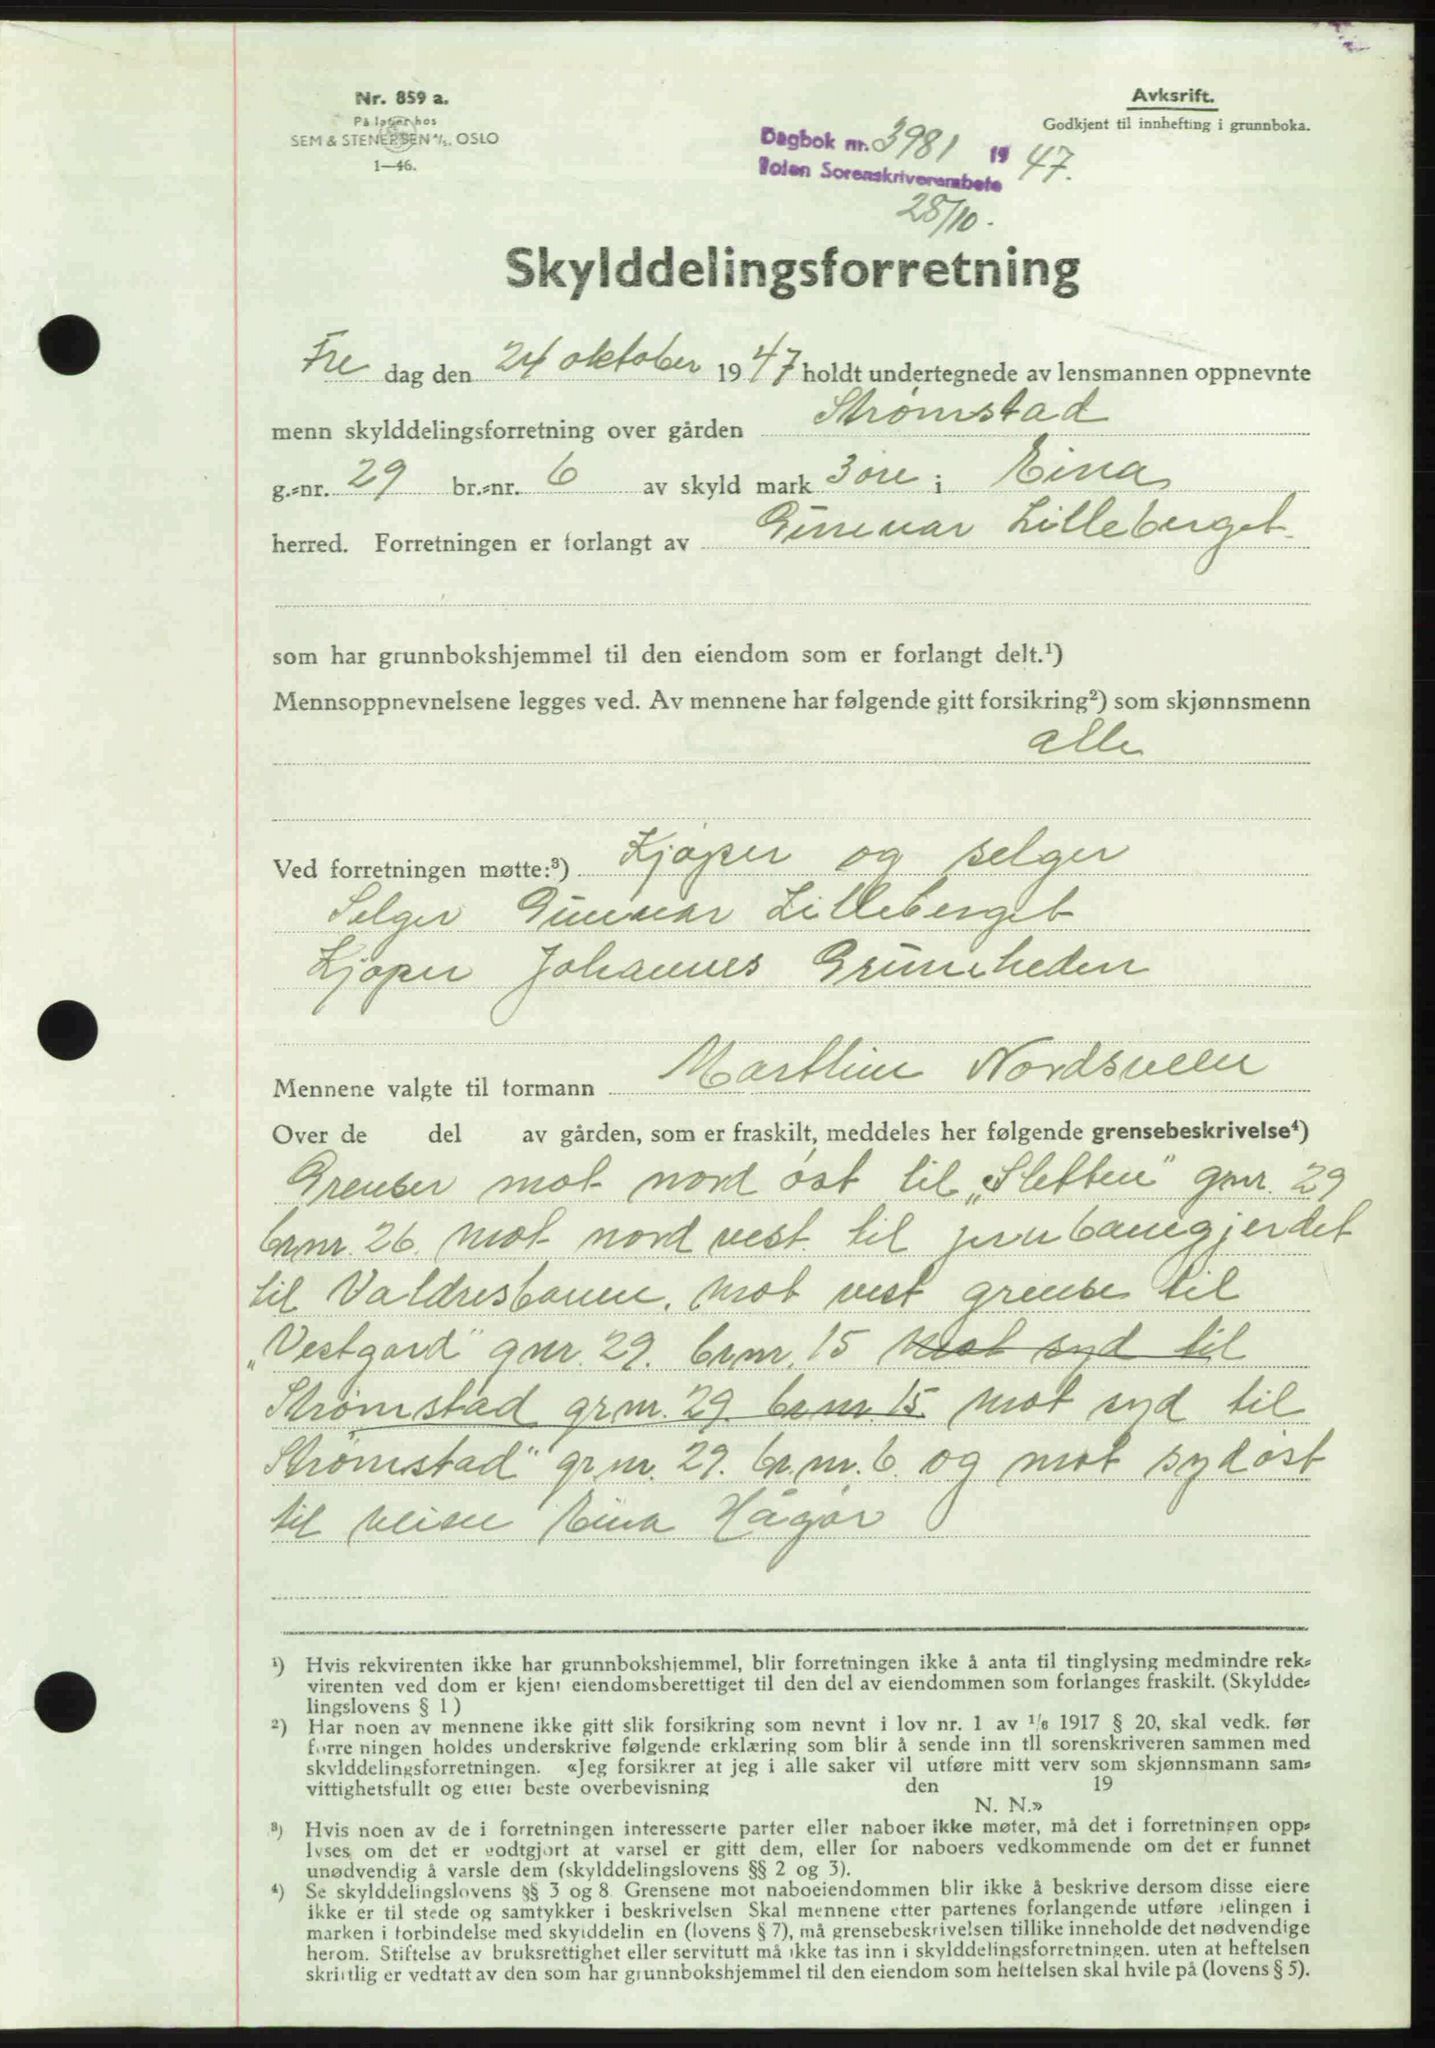 Nr. 859 a.
På lager hos
SEM & STENERSEN A/S. OSLO
1—46.
Avksrift.
Godkjent til innhefting i grunnboka.
Dagbok nr. 3981 1947.
Toten Sorenskriverembete
28/10.
Skylddelingsforretning
Fre dag den 24 oktober 1947 holdt undertegnede av lensmannen oppnevnte
menn skylddelingsforretning over gården Strømstad
g.=nr. 29 br.=nr. 6 av skyld mark 3 øre i Eina
herred. Forretningen er forlangt av Gunnar Lilleberget
som har grunnbokshjemmel til den eiendom som er forlangt delt.¹)
Mennsoppnevnelsene legges ved. Av mennene har følgende gitt forsikring²) som skjønnsmenn
alle
Ved forretningen møtte:³) Kjøper og selger
Selger Gunnar Lilleberget
Kjøper Johannes Gruneheden
Mennene valgte til formann Marthin Nordsveen
Over de del av gården, som er fraskilt, meddeles her følgende grensebeskrivelse⁴)
Grenser mot nord øst til „Sletten" gnr. 29
brnr. 26. mot nord vest til jernbanegjerdet
til Valdresbanen. mot vest grense til
„Vestgard" gnr. 29. brnr. 15 mot syd til
Strømstad grnr. 29. brnr. 15. mot syd til
Strømstad" grnr. 29. br.nr. 6. og mot sydøst
til veien Eina Hågår
¹) Hvis rekvirenten ikke har grunnbokshjemmel, blir forretningen ikke å anta til tinglysing medmindre rek=
virenten ved dom er kjent eiendomsberettiget til den del av eiendommen som forlanges fraskilt. (Skyldde=
lingslovens § 1)
²) Har noen av mennene ikke gitt slik forsikring som nevnt i lov nr. 1 av 1/6 1917 § 20, skal vedk. før
forretningen holdes underskrive følgende erklæring som blir å sende inn til sorenskriveren sammen med
skylddelingsforretningen. «Jeg forsikrer at jeg i alle saker vil utføre mitt verv som skjønnsmann sam=
vittighetsfullt og etter beste overbevisning den 19
N. N.»
³) Hvis noen av de i forretningen interesserte parter eller naboer ikke møter, må det i forretningen opp=
lyses om det er godtgjort at varsel er gitt dem, eller for naboers vedkommende om det er funnet
unødvendig å varsle dem (skylddelingslovens §§ 2 og 3).
⁴) Se skylddelingslovens §§ 3 og 8. Grensene mot naboeiendommen blir ikke å beskrive dersom disse eiere
ikke er til stede og samtykker i beskrivelsen Skal mennene etter partenes forlangende utføre delingen i
marken i forbindelse med skylddelingen (lovens § 7), må grensebeskrivelsen tillike inneholde det nødvendige
herom. Stiftelse av bruksrettighet eller servitutt må ikke tas inn i skylddelingsforretningen. uten at heftelsen
skriftlig er vedtatt av den som har grunnbokshjemmel til den eiendom som heftelsen skal hvile på (lovens § 5).